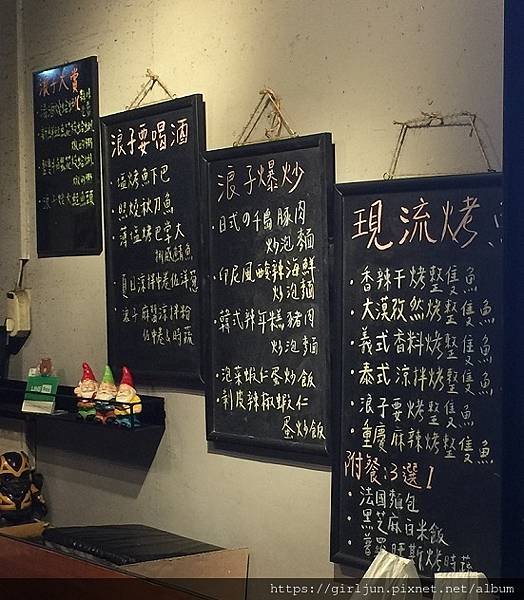 浪子大賞
浪子要喝酒
・塩烤魚下巴
・照燒秋刀魚
・薄塩烤巴掌大
挪威鯖魚
夏日涼拌中卷佐洋蔥
浪子麻醬涼拌粉
佐中卷&時蔬
浪子爆炒
・日式の千島豚肉
炒泡麵
・印尼風酸辣海鮮
炒泡麵
・韓式辣年糕豬肉
炒泡麵
・泡菜蝦仁蛋炒飯
・剝皮辣椒蝦仁
蛋炒飯
現流烤魚
・香辣干烤整隻魚
・大漠孜然烤整隻魚
・義式香料烤整隻魚
・泰式涼拌烤整隻魚
・浪子要烤整隻魚
・重慶麻辣烤整隻魚
附餐:3選1
・法国麵包
・黑芝麻白米飯
・普羅旺斯烤時蔬
LINE Pay
https://girljun.pixnet.net/album